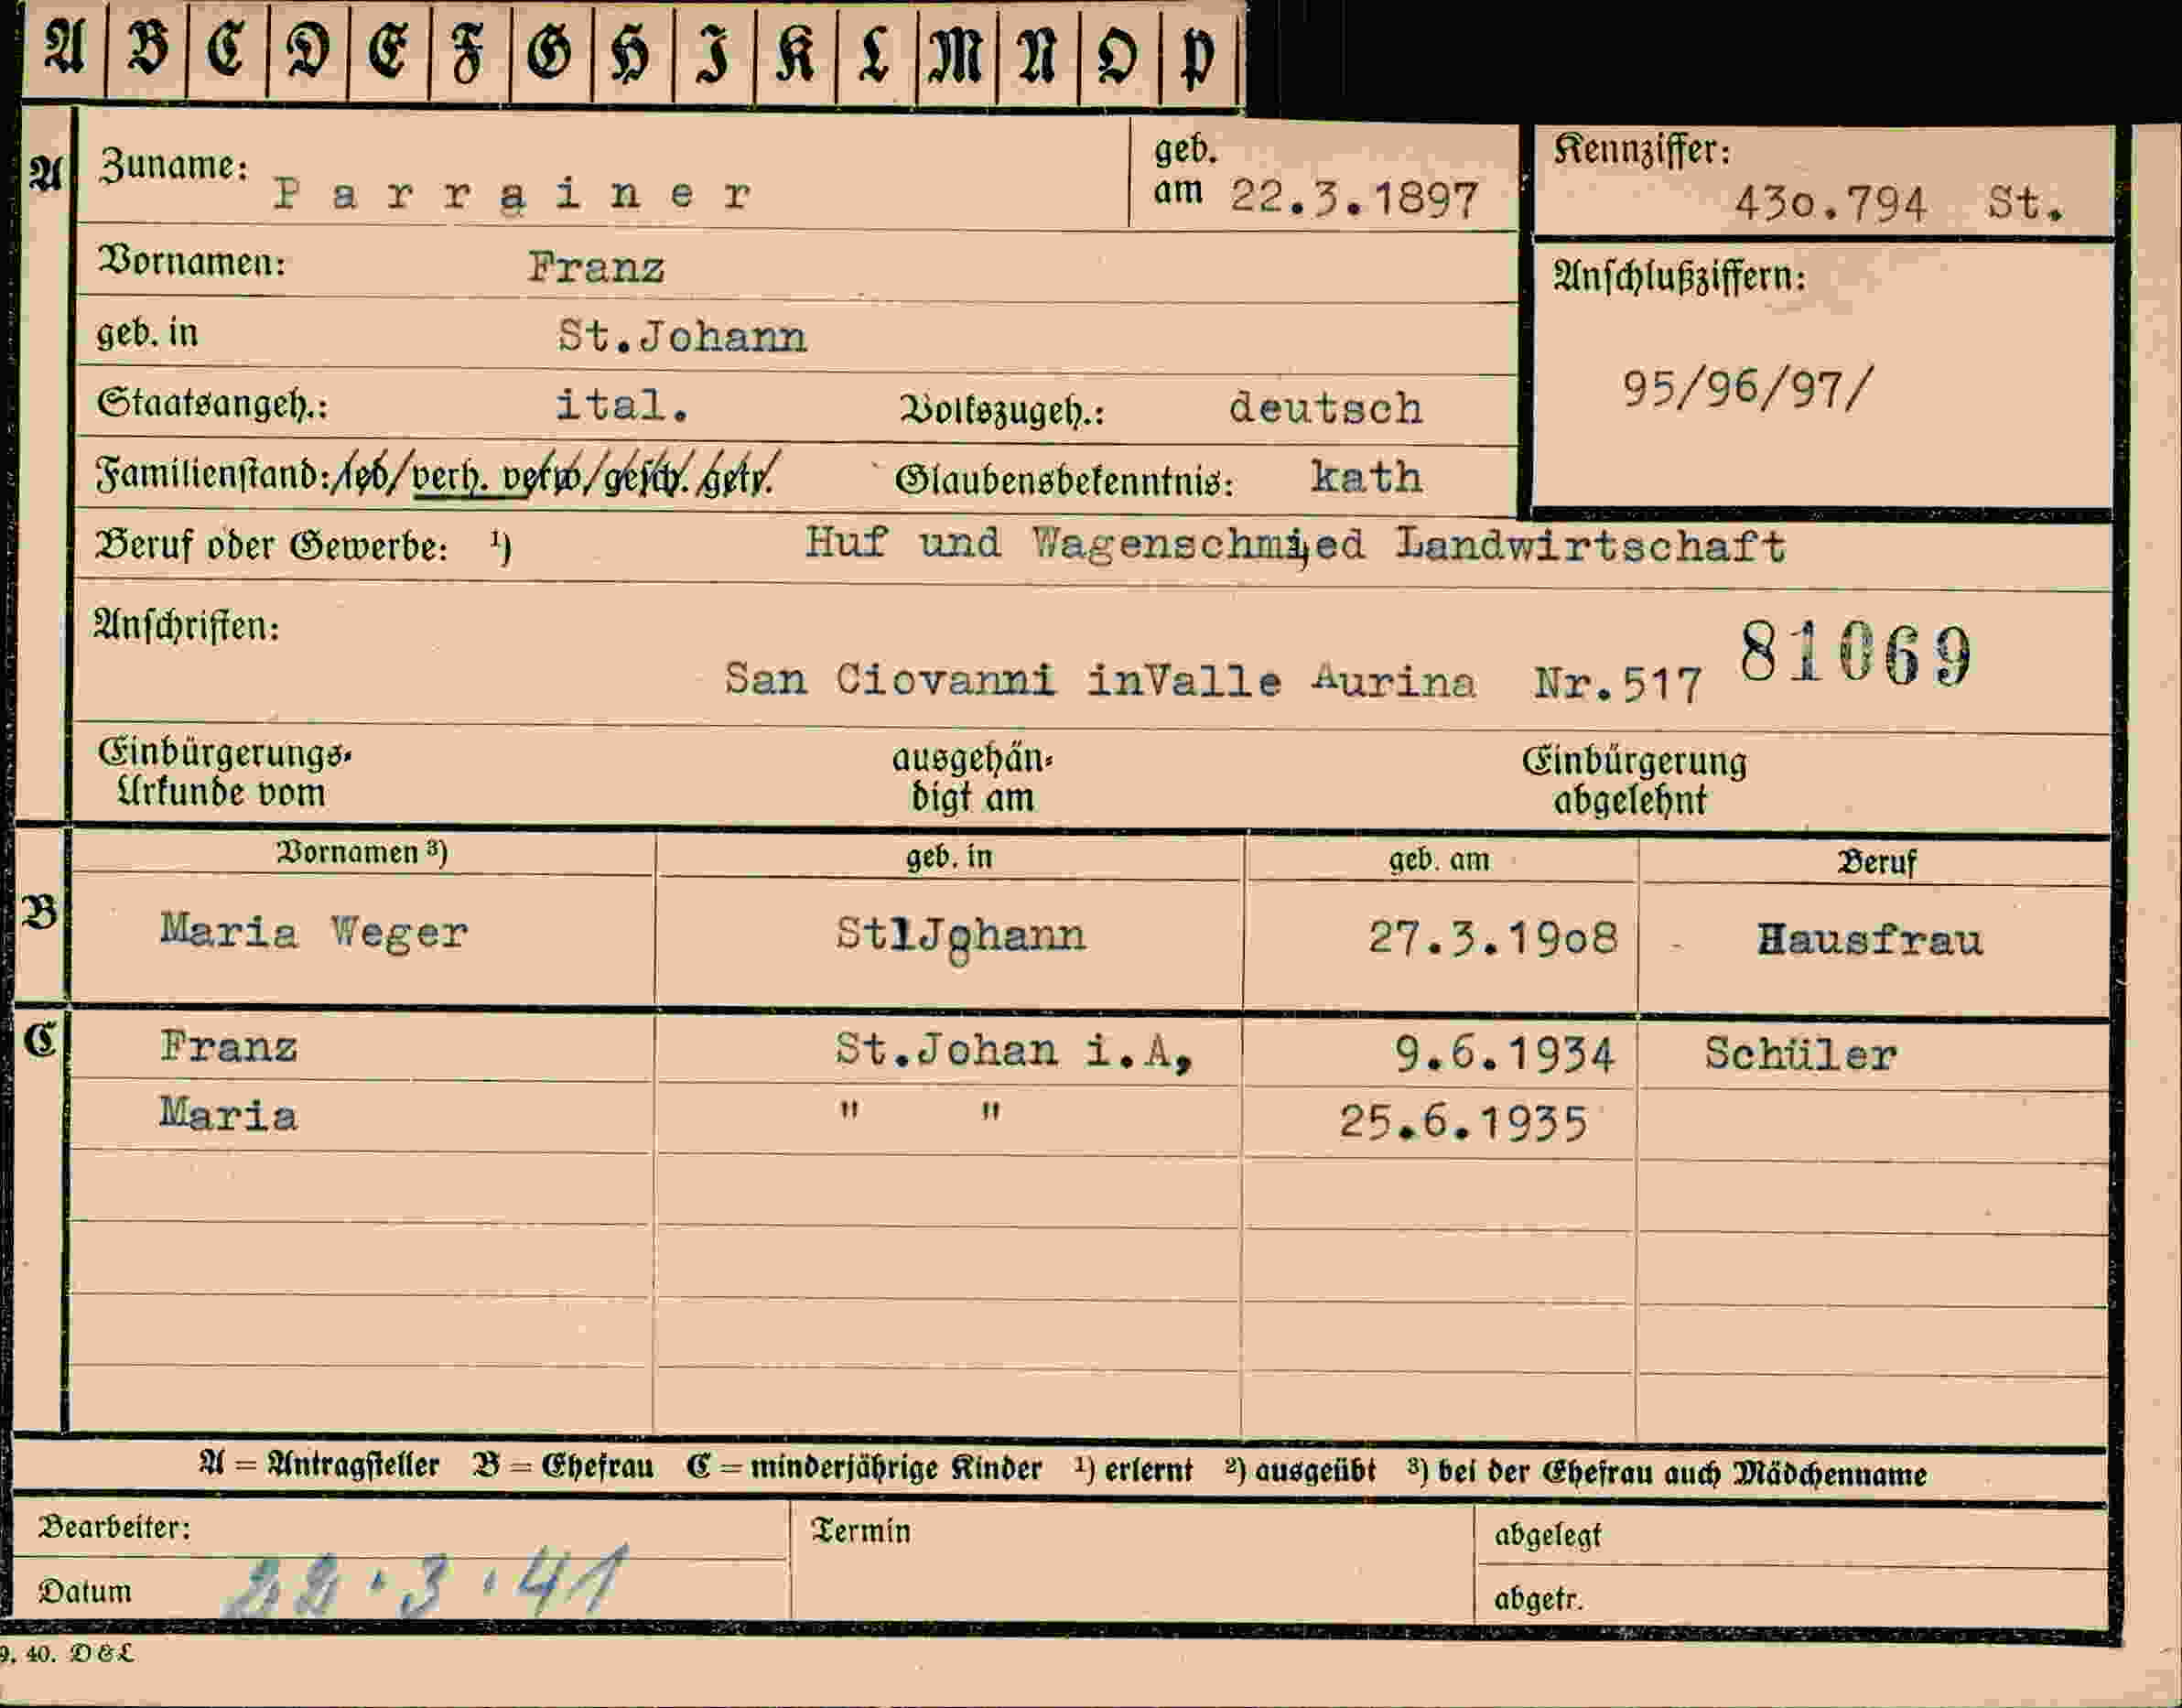 A B C D E F G H I K L M N O P
A Zuname: Parrainer geb. am 22.3.1897 Kennziffer: 430.794 St.
Vornamen: Franz
geb. in St.Johann
Anschlußziffern: 95/96/97/
Staatsangeh.: ital. Volkszugeh.: deutsch
Familienstand: led/verh. verw/gesch. getr. Glaubensbekenntnis: kath
Beruf oder Gewerbe: ¹) Huf und Wagenschmied Landwirtschaft
Anschriften:
San Ciovanni inValle Aurina Nr.517 81069
Einbürgerungs- ausgehän- Einbürgerung
Urkunde vom digt am abgelehnt
Vornamen ³) geb. in geb. am Beruf
B Maria Weger StlJohann 27.3.19o8 - Hausfrau
C Franz St.Johan i.A, 9.6.1934 Schüler
Maria " " 25.6.1935
A = Antragsteller B = Ehefrau C = minderjährige Kinder ¹) erlernt ²) ausgeübt ³) bei der Ehefrau auch Mädchenname
Bearbeiter: Termin abgelegt
Datum 22.3.41 abgetr.
9. 40. D&L